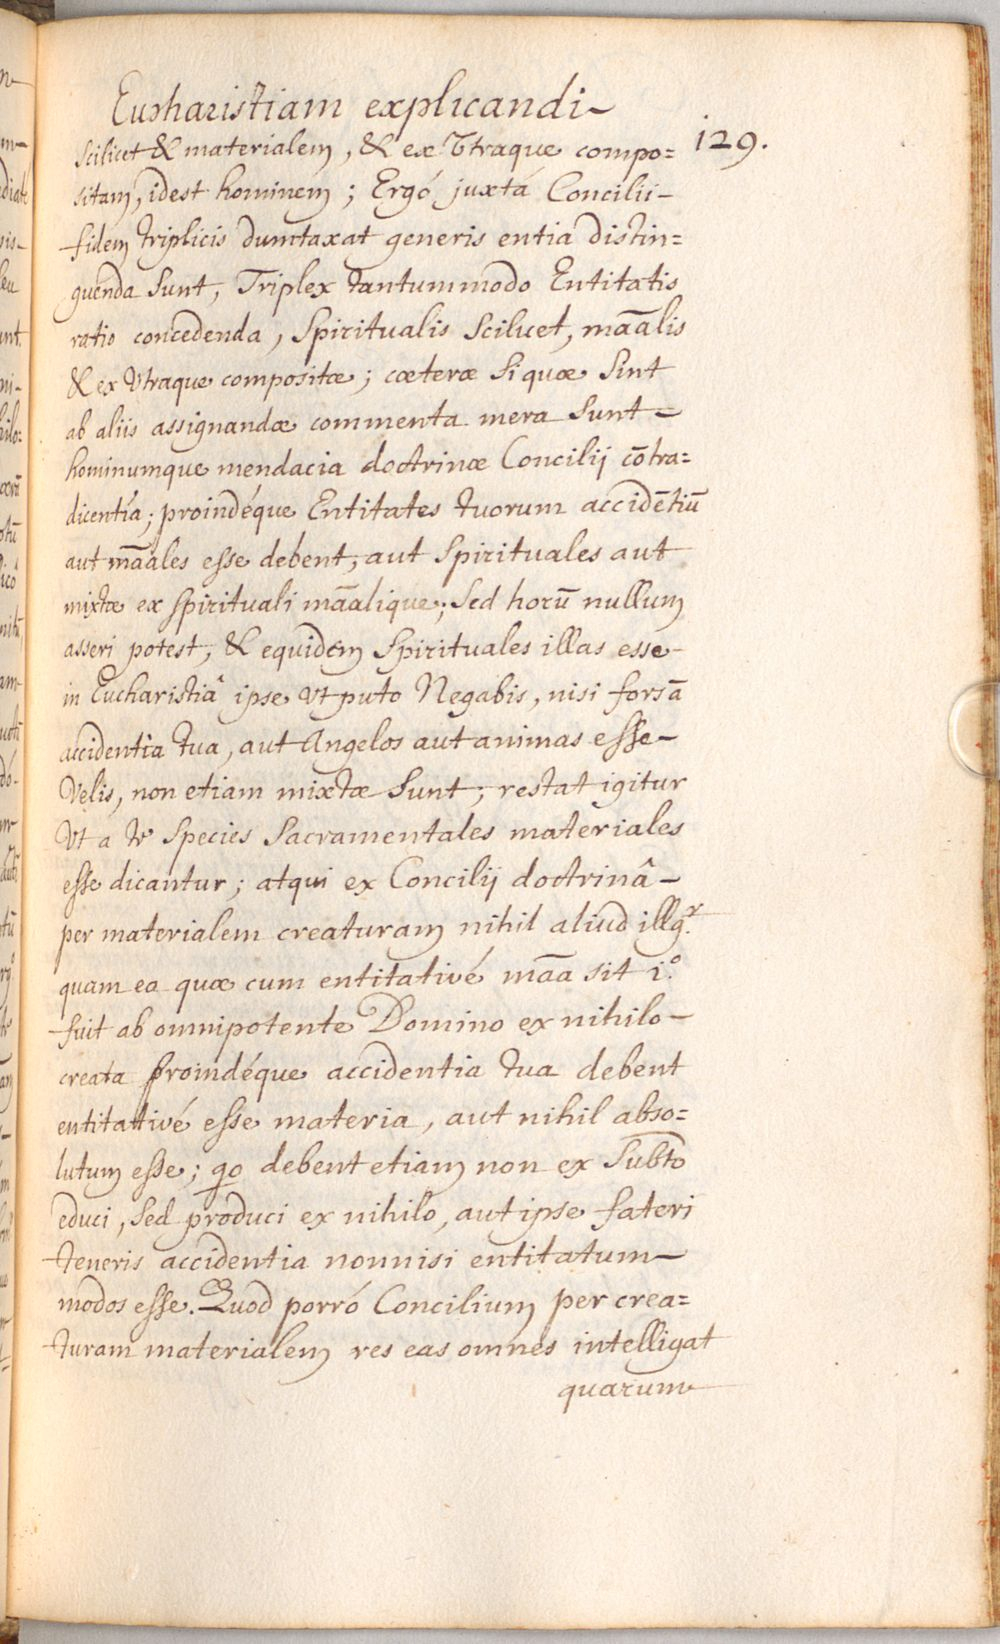 Eucharistiam explicandi-
129.
scilicet & materialem, & ex Vtraque compo=
sitam, idest hominem; Ergó juxtá Concilii-
fidem triplicis dumtaxat generis entia distin=
guenda sunt, Triplex tantummodo Entitatis
ratio concedenda, Spiritualis Scilicet, māālis
& ex Vtraque compositæ; cœteræ si quæ sint
ab aliis assignandæ commenta mera sunt-
hominumque mendacia doctrinæ Concilij cōtra=
dicentia; proindéque Entitates tuorum accidētiū
aut māāles esse debent, aut Spirituales aut
mixtæ ex spirituali māālique; sed horū nullum
asseri potest, & equidem Spirituales illas esse-
in Eucharistiâ ipse Vt puto Negabis, nisi forsā
accidentia tua, aut Angelos aut animas esse-
Velis, non etiam mixtæ sunt; restat igitur
Vt a te Species Sacramentales materiales
esse dicantur; atqui ex Concilij doctrinâ-
per materialem creaturam nihil aliud illgr.
quam ea quæ cum entitativé māā sit i.º
fuit ab omnipotente Domino ex nihilo-
creata proindéque accidentia tua debent
entitativé esse materia, aut nihil abso=
lutum esse; qo debent etiam non ex Subto
educi, sed produci ex nihilo, aut ipse fateri
teneris accidentia nonnisi entitatum-
modos esse. Quod porró Concilium per crea=
turam materialem res eas omnes intelligat
quarum